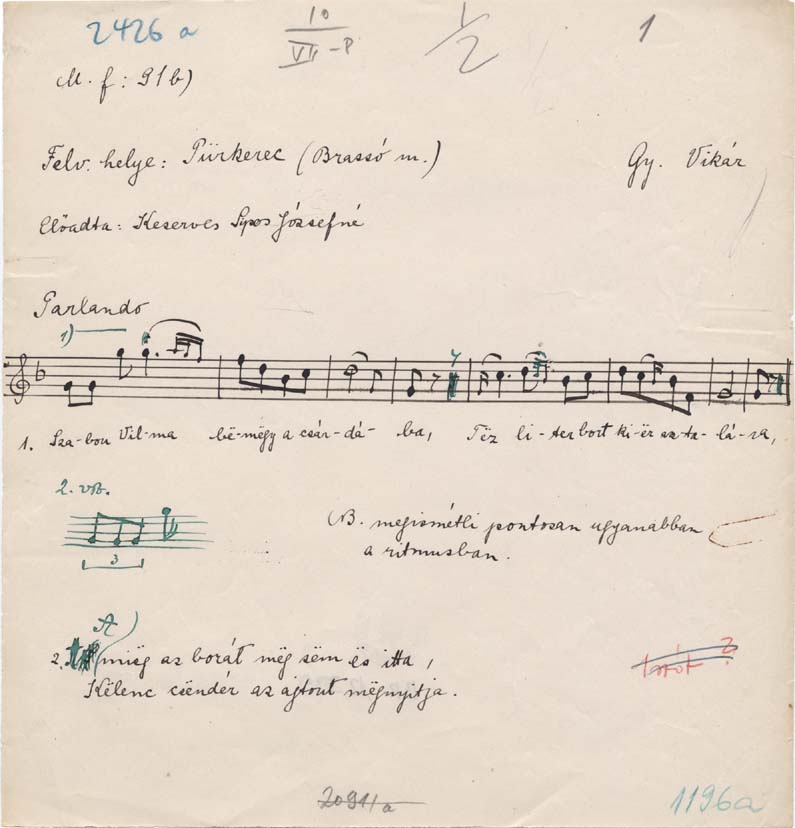 2426 a
10
VII - P
1/2
1
M. f: 91b)
Felv. helye: Pürkerec (Brassó m.)
Gy. Vikár
Előadta: Keserves Sipos Józsefné
Parlando
1)
1. Sza-bou Vil-ma bë-mëgy a csár-dá-ba, Tëz li-ter bort ki-ër asz-ta-lá-ra,
2. vsz.
3
B. megismétli pontosan ugyanabban
a ritmusban.
A)
2. mig az borát még sëm ës itta,
Këlenc csëndér az ajtout mëgnyitja.
2091/a
1196a